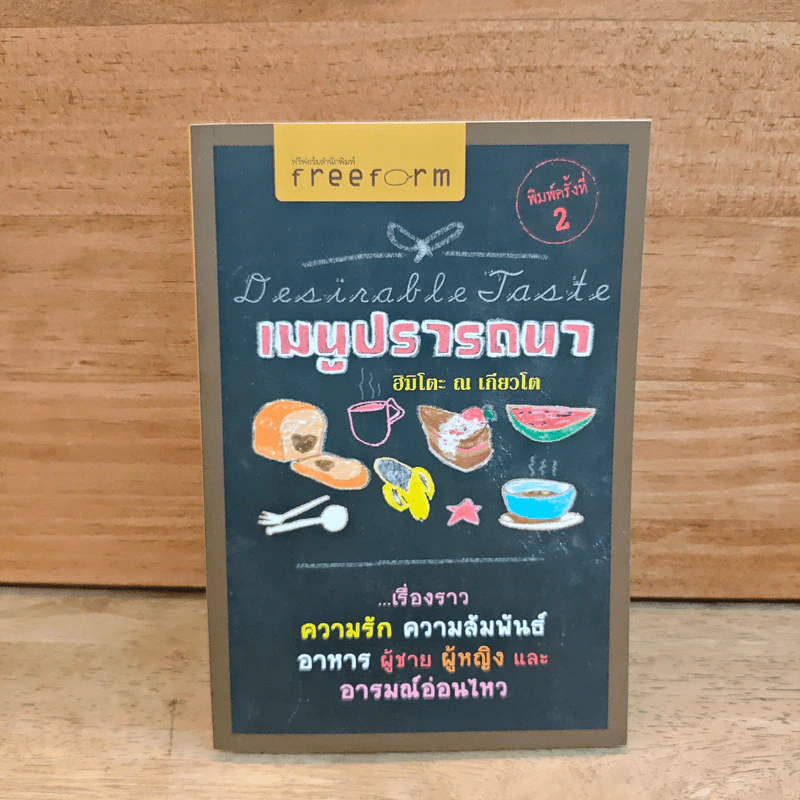 ฟรีฟอร์มสำนักพิมพ์
freeform
พิมพ์ครั้งที่
2
Desirable Taste
เมนูปรารถนา
ฮิมิโตะ ณ เกียวโต
...เรื่องราว
ความรัก ความสัมพันธ์
อาหาร ผู้ชาย ผู้หญิง และ
อารมณ์อ่อนไหว